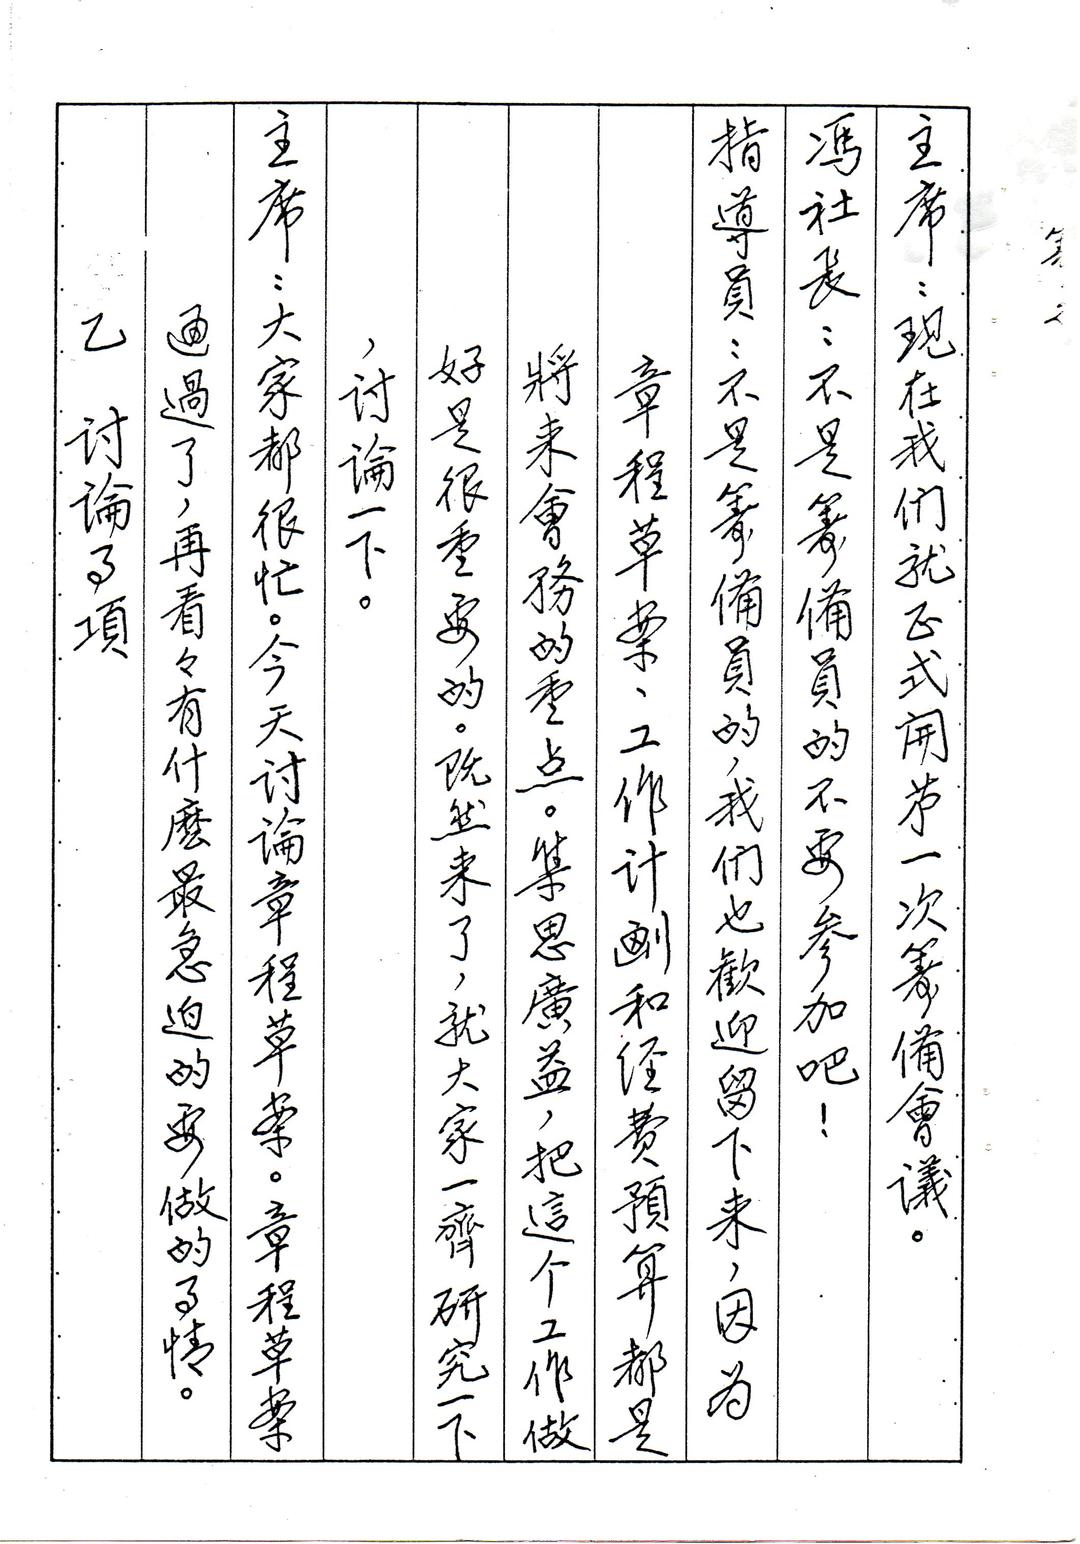 主席：現在我們就正式開第一次籌備會議。
馮社長：不是籌備員的不要参加吧！
指導員：不是籌備員的，我們也歡迎留下来，因为
章程草案、工作計劃和経費預算都是
將来會務的重点。集思廣益，把這个工作做
好是很重要的。既然来了，就大家一齊研究一下
，討論一下。
主席：大家都很忙。今天討論章程草案。章程草案
通過了，再看々有什麼最急迫的要做的事情。
乙 討論事項